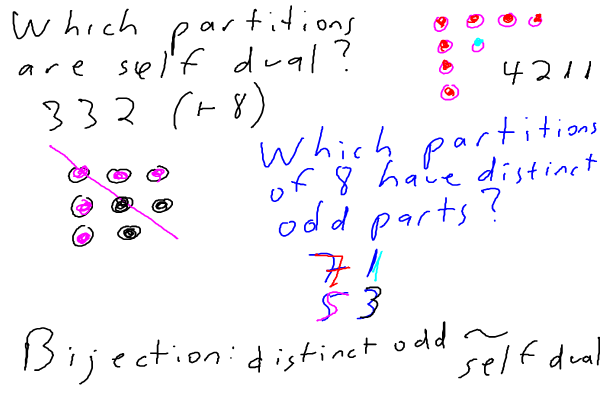 Which partitions
are self dual?
3 3 2 (⊢ 8)
4 2 1 1
Which partitions
of 8 have distinct
odd parts?
7 1
5 3
Bijection: distinct odd ~ self dual